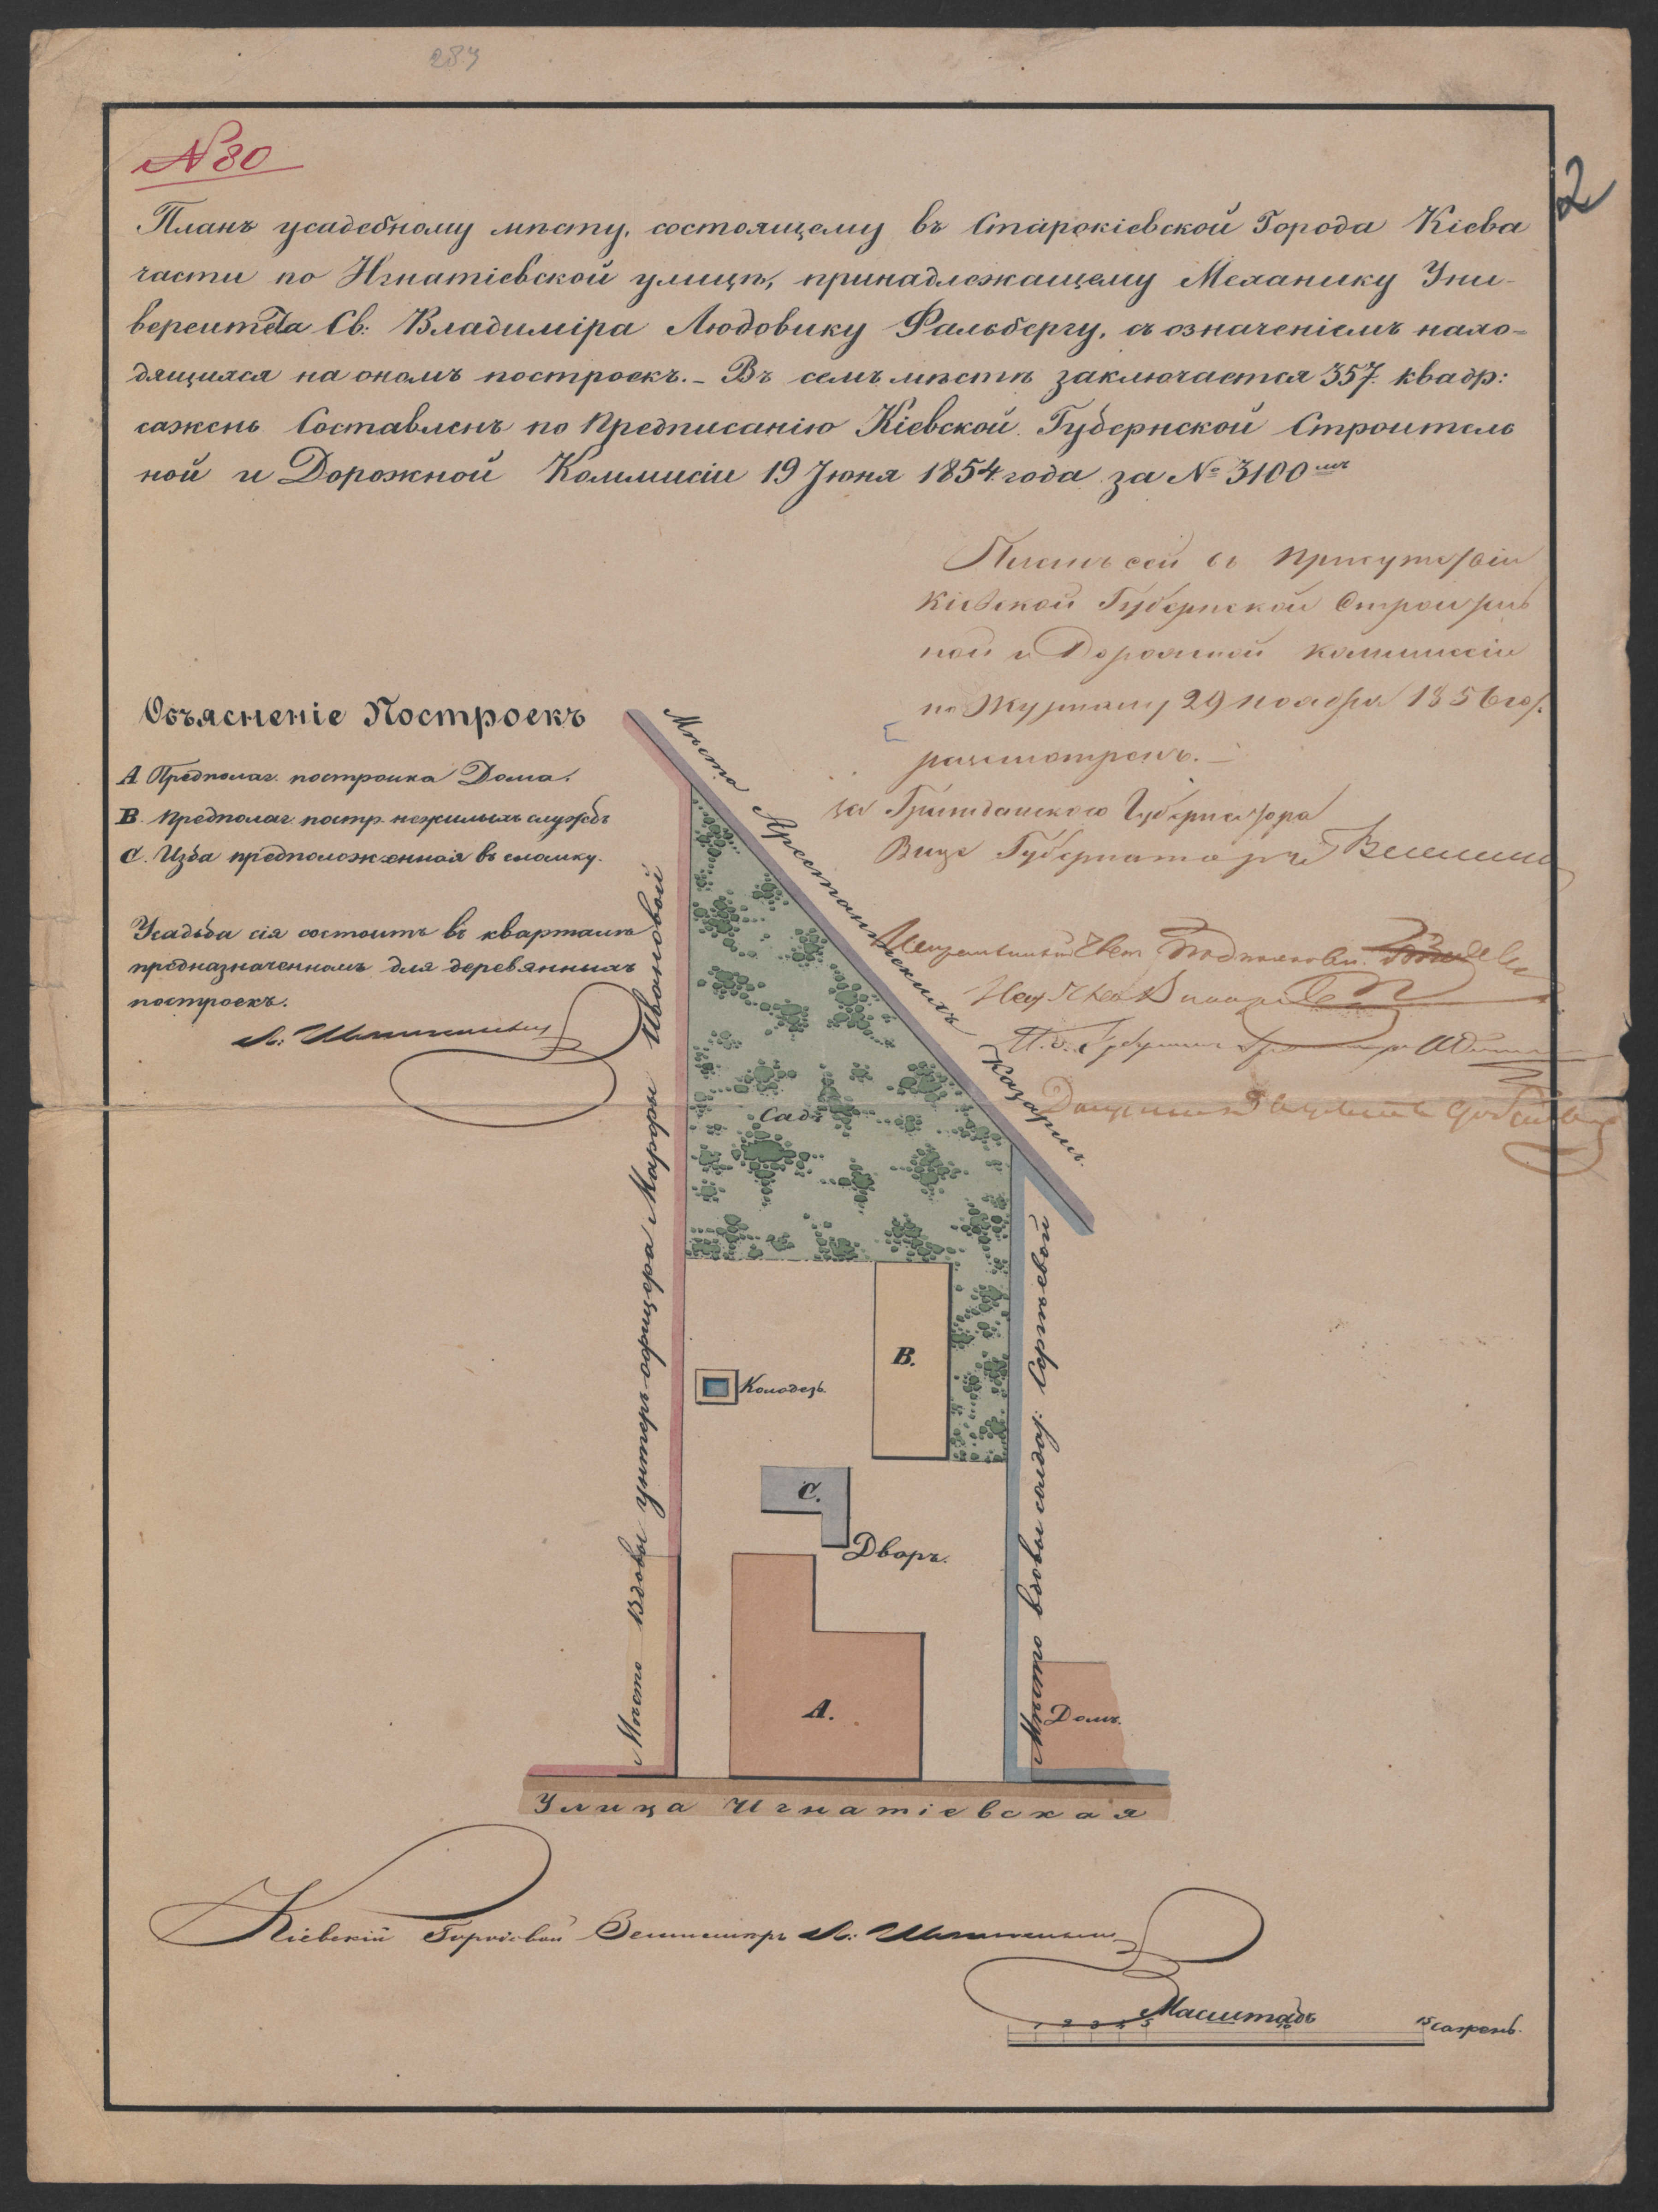 289
№ 80
2
Планъ усадебному мѣсту, состоящему въ Старокіевской Города Кіева
части по Игнатіевской улицѣ, принадлежащему Механику Уни-
верситета Св: Владиміра Людовику Фальбергу, съ означеніемъ нахо-
дящихся на ономъ построекъ. - Въ семъ мѣстѣ заключается 357 квадр:
сажень Составленъ по Предписанію Кіевской Губернской Строитель
ной и Дорожной Коммисіи 19 Іюня 1854 года за № 3100мъ
Планъ сей въ присутствіи
Кіевской Губернской Строитель
ной и Дорожной Коммиссіи
по Журналу 29 ноября 1856 год.
разсмотренъ. -
за Гражданскаго Губернатора
Вице Губернаторъ
Объясненіе Построекъ
А Предполаг. постройка Дома.
В. Предполаг постр. нежилыхъ службъ
С. Изба предположенная въ сломку.
Усадьба сія состоитъ въ кварталѣ
предназначенномъ для деревянныхъ
построекъ.
Мѣста Арестантскихъ Казармъ.
Мѣсто Вдовы унтеръ-офицера Марфы Ивановой
Садъ
В.
Колодезь.
С.
Дворъ.
А.
Мѣсто вдовы солдат: Сергѣевой
Домъ.
Улица Игнатіевская
Кіевскій Городовой Землемѣръ
Масштабъ
1 2 3 4 5 10 15 сажень.